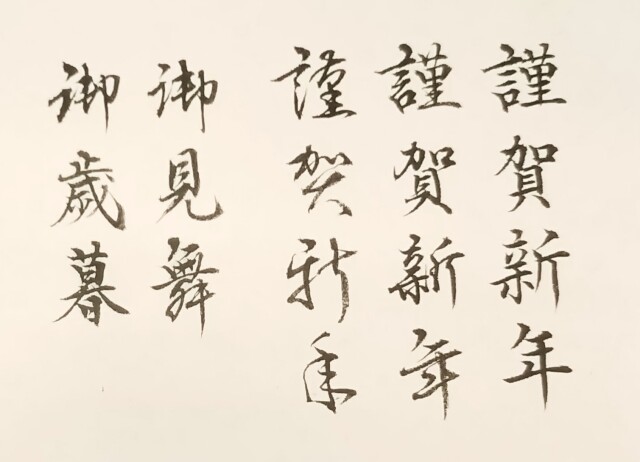 謹賀新年
謹賀新年
謹賀新年
御見舞
御歳暮